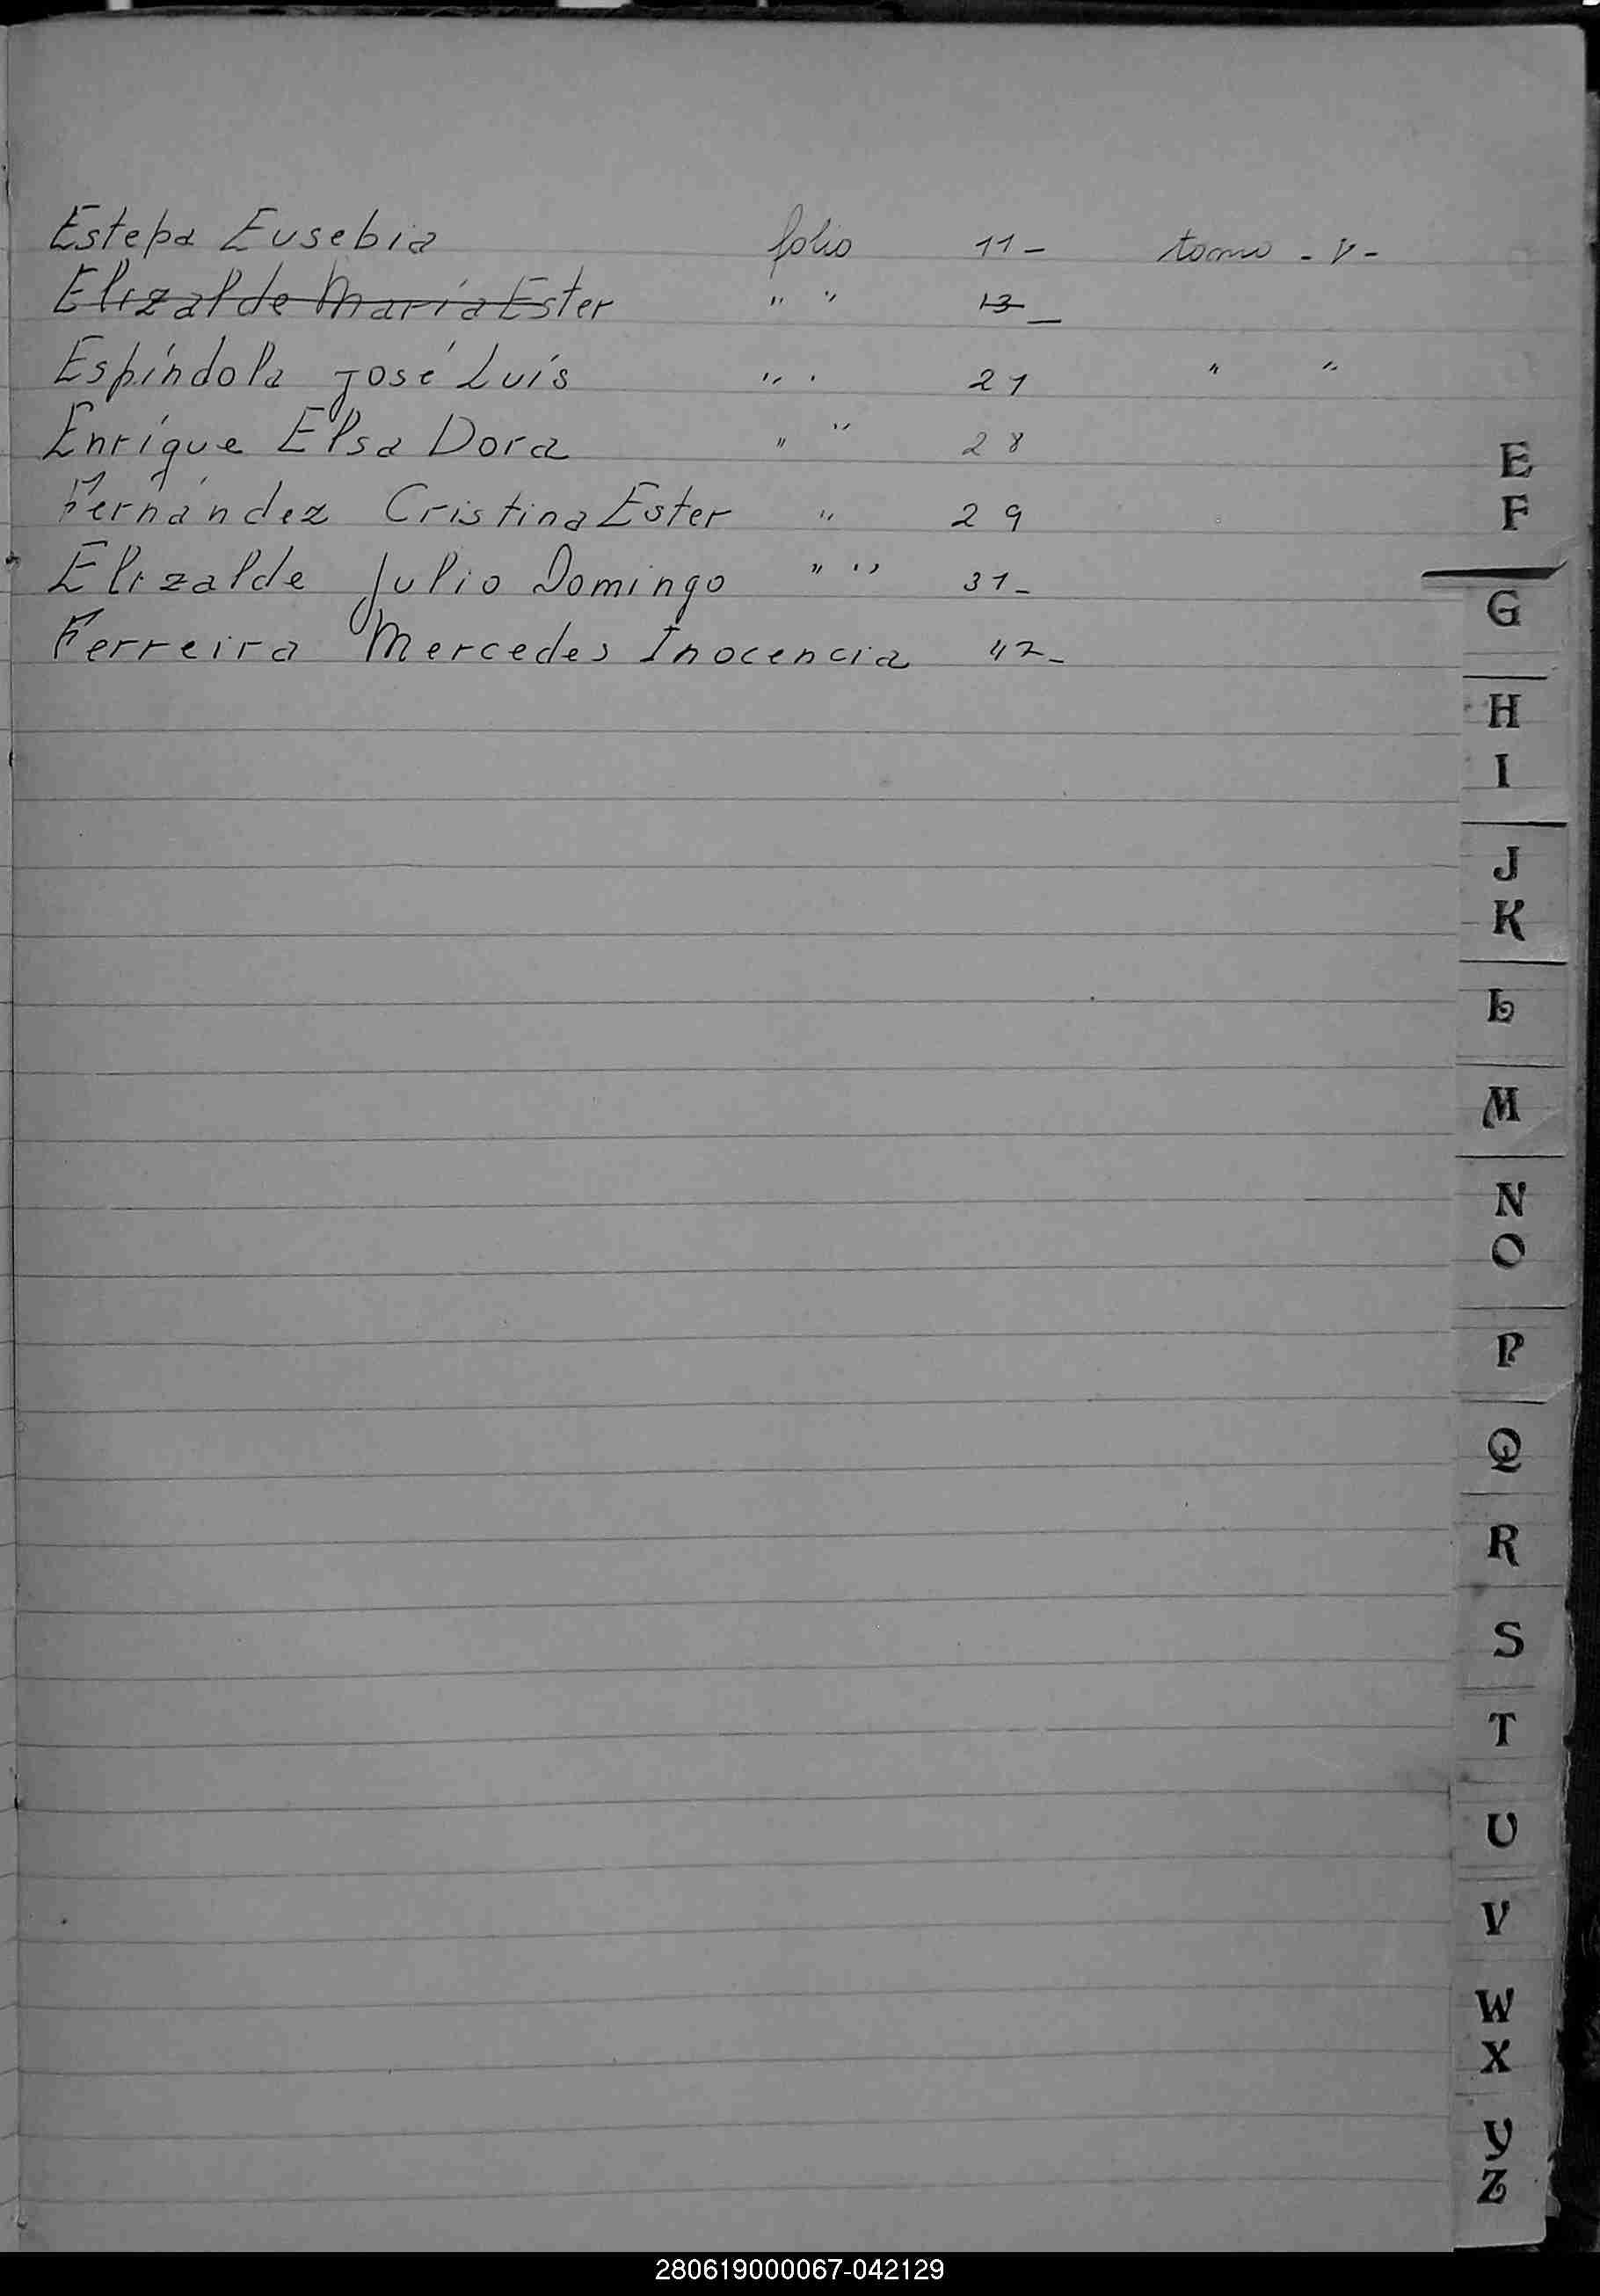 Estepa Eusebia folio 11- tomo - V -
Elizalde María Ester " " 13 _
Espíndola José Luís " " 21 " "
Enrique Elsa Dora " " 28
Fernández Cristina Ester " 29
Elizalde Julio Domingo " " 31-
Ferreira Mercedes Inocencia 42-
E
F
G
H
I
J
K
L
M
N
O
P
Q
R
S
T
U
V
W
X
Y
Z
280619000067-042129